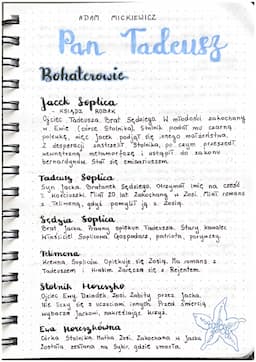 ADAM MICKIEWICZ
Pan Tadeusz
Bohaterowie
Jacek Soplica
- KSIĄDZ ROBAK
Ojciec Tadeusza. Brat Sędziego. W młodości zakochany
w Ewie (córce Stolnika). Stolnik podał mu czarną
polewkę, więc Jacek podjął się innego małżeństwa.
Z desperacji zastrzelił Stolnika, po czym przeszedł
wewnętrzną metamorfozę i wstąpił do zakonu
bernardynów. Stał się emisariuszem.
Tadeusz Soplica
Syn Jacka. Bratanek Sędziego. Otrzymał imię na cześć
z Kościuszki. Miał 20 lat. Zakochany w Zosi. Miał romans
z Telimeną, gdyż pomylił ją z Zosią.
Sędzia Soplica
Brat Jacka. Prawny opiekun Tadeusza. Stary kawaler.
Właściciel Soplicowa. Gospodarz, patriota, porywczy.
Telimena
Krewna Sopliców. Opiekuje się Zosią. Ma romans z
Tadeuszem i Hrabim. Zaręcza się z Rejentem.
Stolnik Horeszko
Ojciec Ewy. Dziadek Zosi. Zabity przez Jacka.
Nie liczy się z uczuciami innych. Przed śmiercią
wybacza Jackowi, nakreślając krzyż.
Ewa Horeszkówna
Córka Stolnika. Matka Zosi. Zakochana w Jacku.
Została zesłana na Sybir, gdzie zmarła.